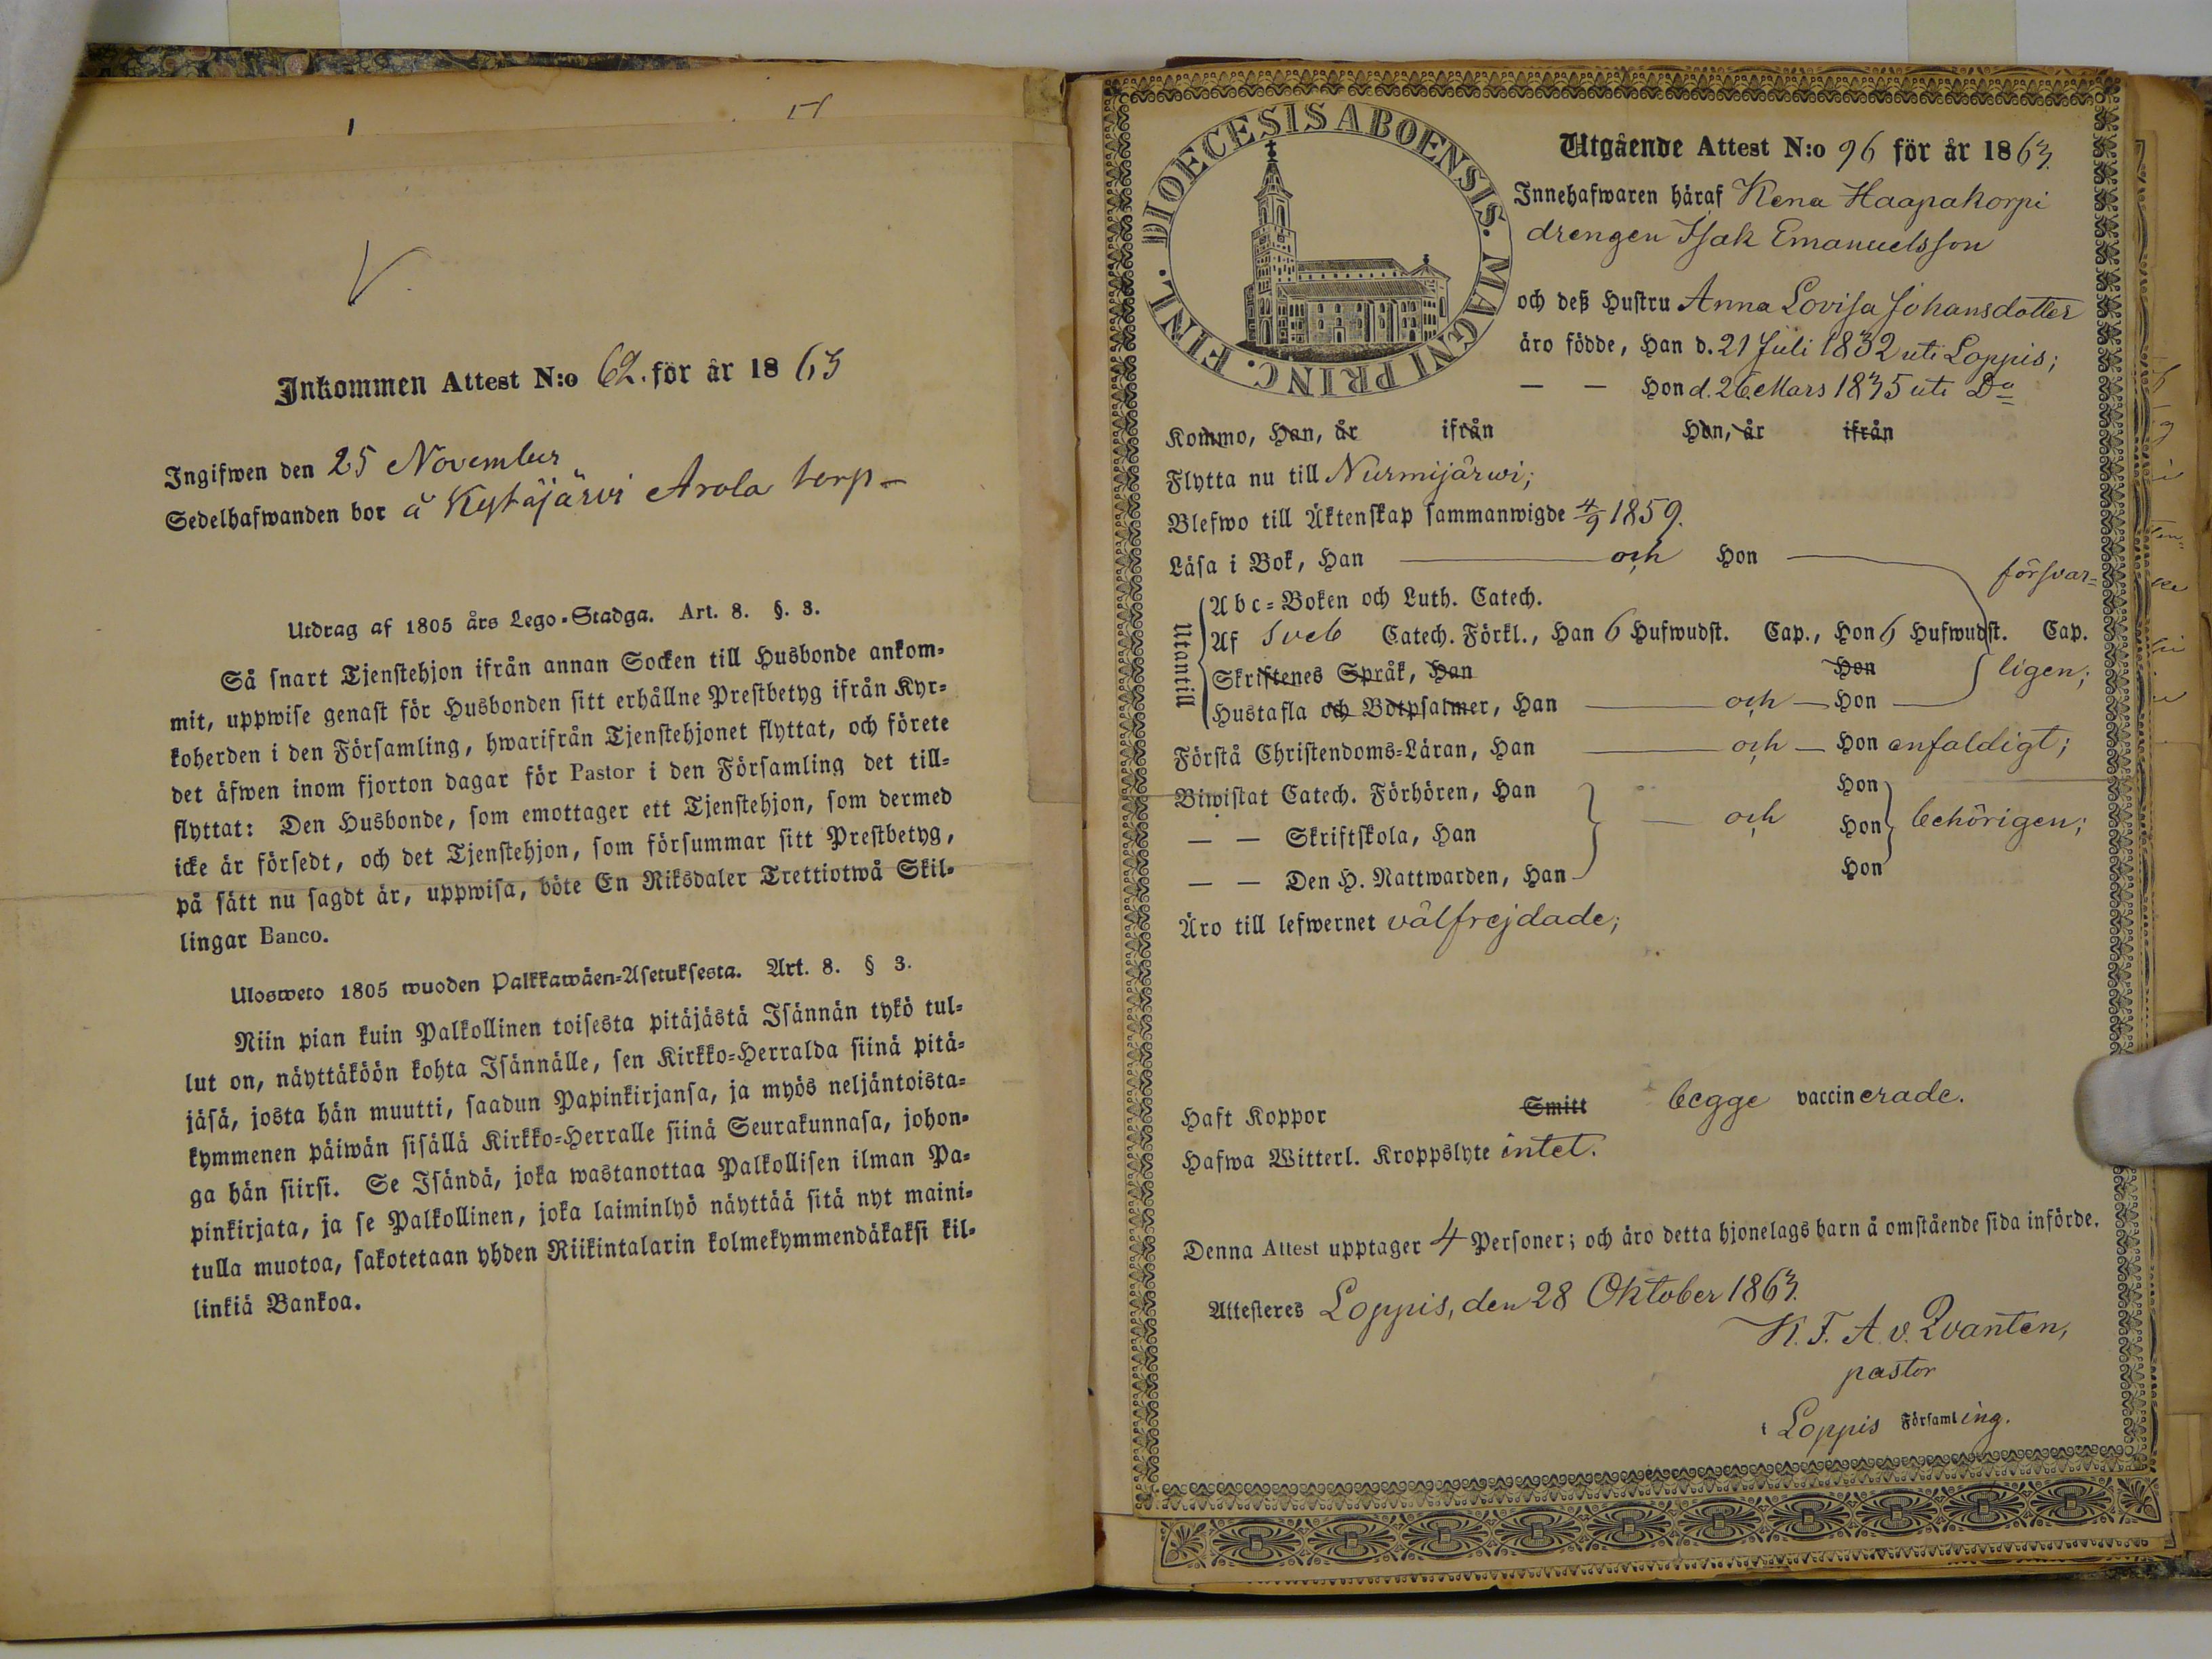 Inkommen Attest N:o 62. för år 1863
Ingifwen den 25 November
Sedelhafwanden bor å Kytäjärvi Arola torp
Utdrag af 1805 års Lego-Stadga. Art. 8. §. 3.
Så snart Tjenstehjon ifrån annan Socken till Husbonde ankom-
mit, uppwise genast för Husbonden sitt erhållne Prestbetyg ifrån Kyr-
koherden i den Församling, hwarifrån Tjenstehjonet flyttat, och förete
det äfwen inom fjorton dagar för Pastor i den Församling det till-
flyttat: Den Husbonde, som emottager ett Tjenstehjon, som dermed
icke är försedt, och det Tjenstehjon, som försummar sitt Prestbetyg,
på sätt nu sagdt är, uppwisa, böte En Riksdaler Trettiotwå Skil-
lingar Banco.
Ulosweto 1805 wuoden Palkkawäen-Asetuksesta. Art. 8. § 3.
Niin pian kuin Palkollinen toisesta pitäjästä Isännän tykö tul-
lut on, näyttäköön kohta Isännälle, sen Kirkko-Herralda siinä pitä-
jäsä, josta hän muutti, saadun Papinkirjansa, ja myös neljäntoista-
kymmenen päiwän sisällä Kirkko-Herralle siinä Seurakunnasa, johon-
ga hän siirsi. Se Isändä, joka wastanottaa Palkollisen ilman Pa-
pinkirjata, ja se Palkollinen, joka laiminlyö näyttää sitä nyt maini-
tulla muotoa, sakotetaan yhden Riikintalarin kolmekymmendäkaksi kil-
linkiä Bankoa.
DIOECESIS ABOENSIS. MAGNI PRINC. FINL.
Utgående Attest N:o 96 för år 1863.
Innehafwaren häraf Rena Haapakorpi
drengen Isak Emanuelsson
och deß Hustru Anna Lovisa Johansdotter
äro födde, Han d. 21 Juli 1832 uti Loppis;
— — Hon d. 26 Mars 1835 uti Do
Kommo, Han, år ifrån Hon, år ifrån
Flytta nu till Nurmijärwi;
Blefwo till Äktenskap sammanwigde 4/9 1859.
Läsa i Bok, Han och Hon försvar=
Utantill
Abc=Boken och Luth. Catech.
Af Sveb Catech. Förkl., Han 6 Hufwudst. Cap., Hon 6 Hufwudst. Cap.
Skriftenes Språk, Han Hon ligen;
Hustafla och Botpsalmer, Han och Hon
Förstå Christendoms-Läran, Han och Hon enfaldigt;
Biwistat Catech. Förhören, Han Hon
— — Skriftskola, Han och Hon behörigen;
— — Den H. Nattwarden, Han Hon
Äro till lefwernet välfrejdade;
Haft Koppor Smitt begge vaccinerade.
Hafwa Witterl. Kroppslyte intet.
Denna Attest upptager 4 Personer; och äro detta hjonelags barn å omstående sida införde.
Attesteres Loppis, den 28 Oktober 1863.
K. F. A. v. Qvanten,
pastor
i Loppis Församling.